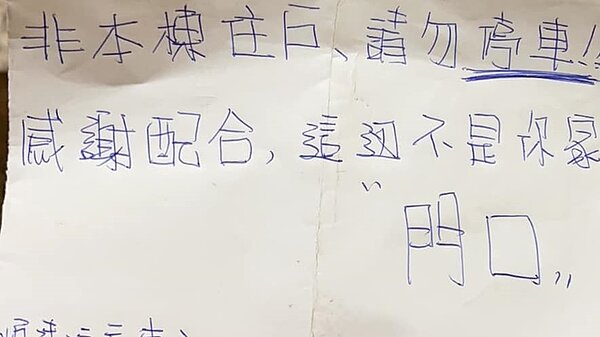 非本棟住戶、請勿停車!!
感謝配合,這迴不是你家
"門口"